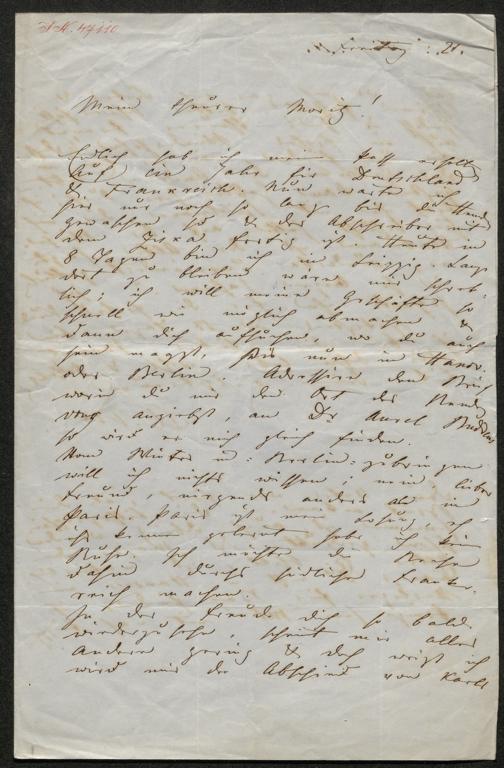 I.N. 47110
Freitag 21.
Mein theurer Moritz!
Endlich hab ich mein Paß erhalten
Auf ein Jahr für Deutschland
& Frankreich. Nun warte ich
hier nur noch so lang bis die Hemden
gewaschen sind & der Abschreiber mit
dem Ziska fertig ist. Heute in
8 Tagen bin ich in Leipzig. Lang
dort zu bleiben wäre mir schreck-
lich; ich will meine Geschäfte so
schnell wie möglich abmachen &
dann dich aufsuchen, wo du auch
sein magst, sei's nun in Hanov.
oder Berlin. Adressire den Brief
worin du mir den Ort des Rendez
vous angiebst, an Dr Aurel Buddeus
so wird er mich gleich finden.
Vom Winter in Berlin zubringen
will ich nichts wissen; mein lieber
Freund, nirgends anders als in
Paris. Paris ist mein Losung, eh
ich kennen gelernt habe ich keine
Ruhe. Ich möchte die Reise
dahin durchs südliche Frank-
reich machen.
In der Freude dich so bald
wiederzusehn, scheint mir alles
Andere gering & doch weiß ich
wird mir der Abschied von Karls